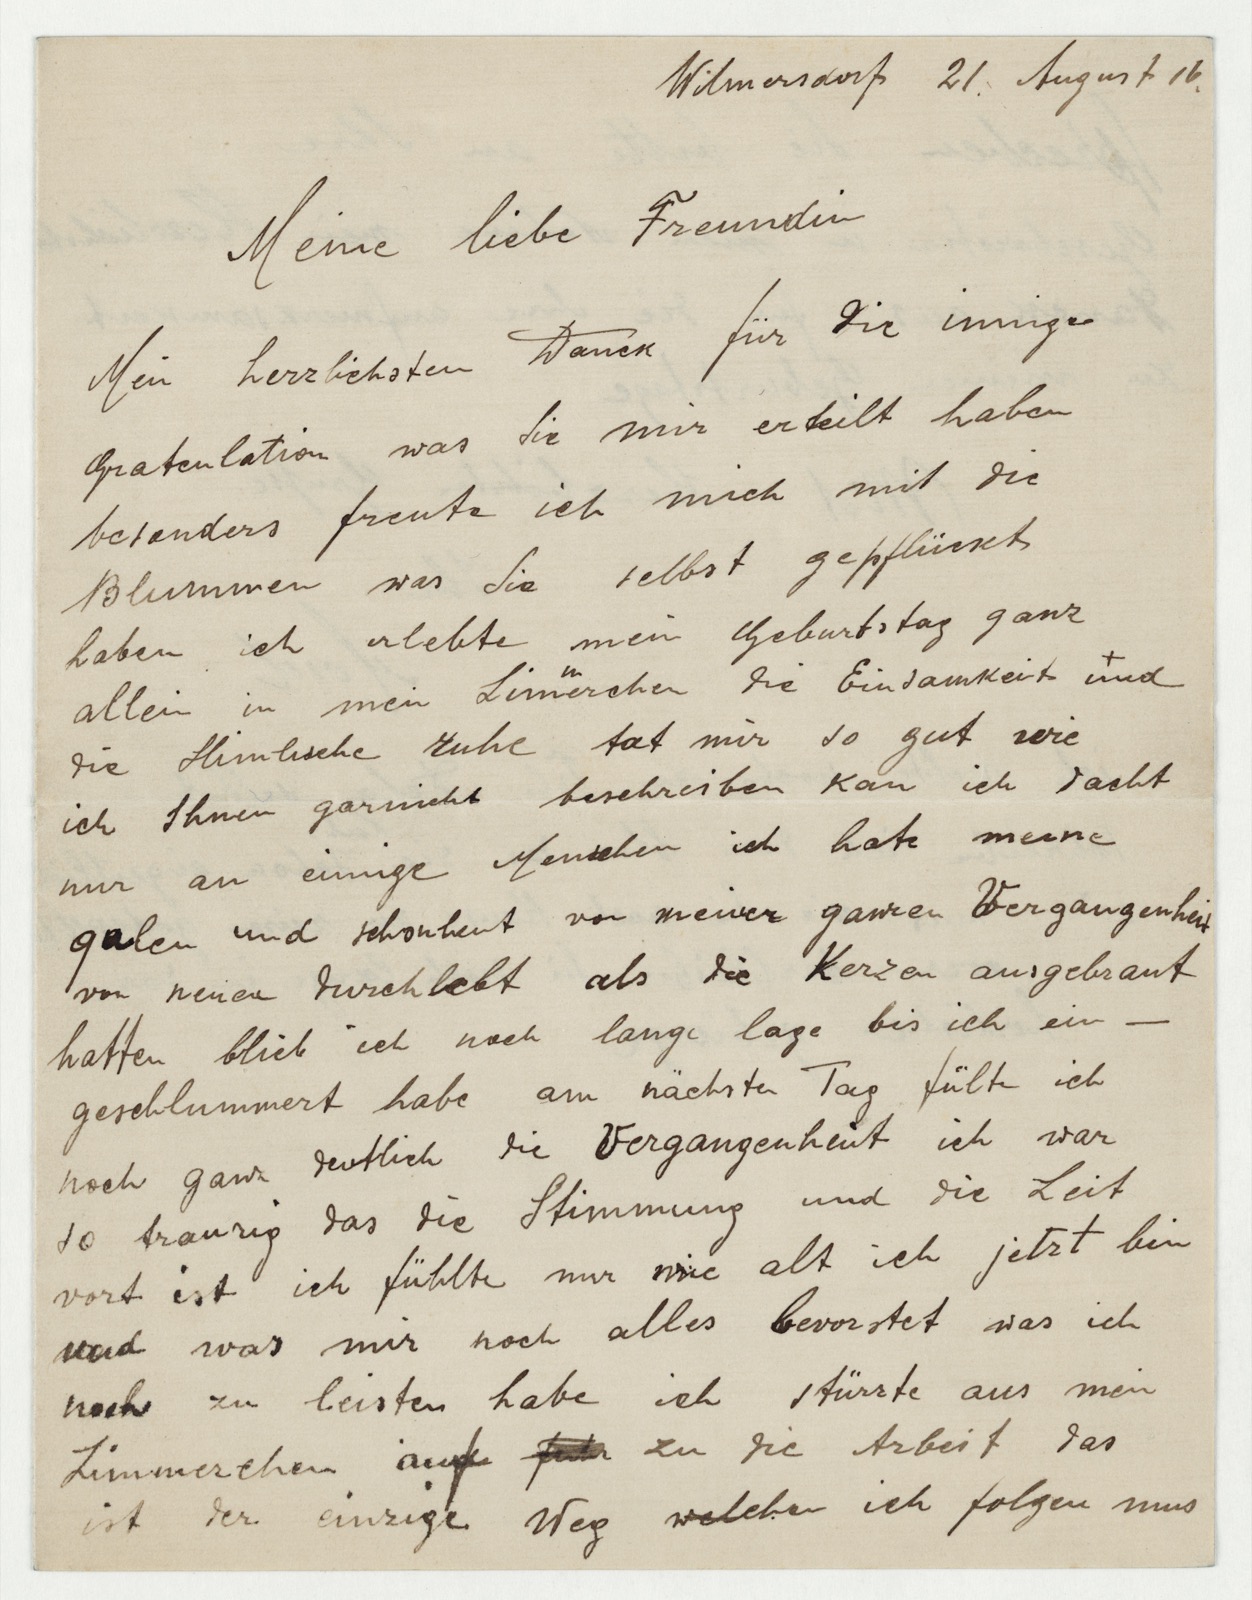 Wilmersdorf 21. August 16.
Meine liebe Freundin
Mein herzlichsten Danck für die innige
Gratenlation was Sie mir erteilt haben
besonders freute ich mich mit die
Blummen was Sie selbst gepflückt
haben ich erlebte mein Geburtstag ganz
allein in mein Zimmerchen die Einsamkeit und
die Himlische ruhe tat mir so gut wie
ich Ihnen garnicht beschreiben kan ich dacht
nur an einige Menschen ich hate meine
qualen und schonheut von meiner ganzen Vergangenheit
von neuen durchlebt als die Kerzen ausgebrant
hatten blieb ich noch lange lage bis ich ein —
geschlummert habe am nächsten Tag fülte ich
noch ganz deutlich die Vergangenheut ich war
so traurig das die Stimmung und die Zeit
vort ist ich fühlte nur wie alt ich jetzt bin
und was mir noch alles bevorstet was ich
noch zu leisten habe ich stürzte aus mein
Zimmerchen auf zu die Arbeit das
ist der einzige Weg welchen ich folgen mus